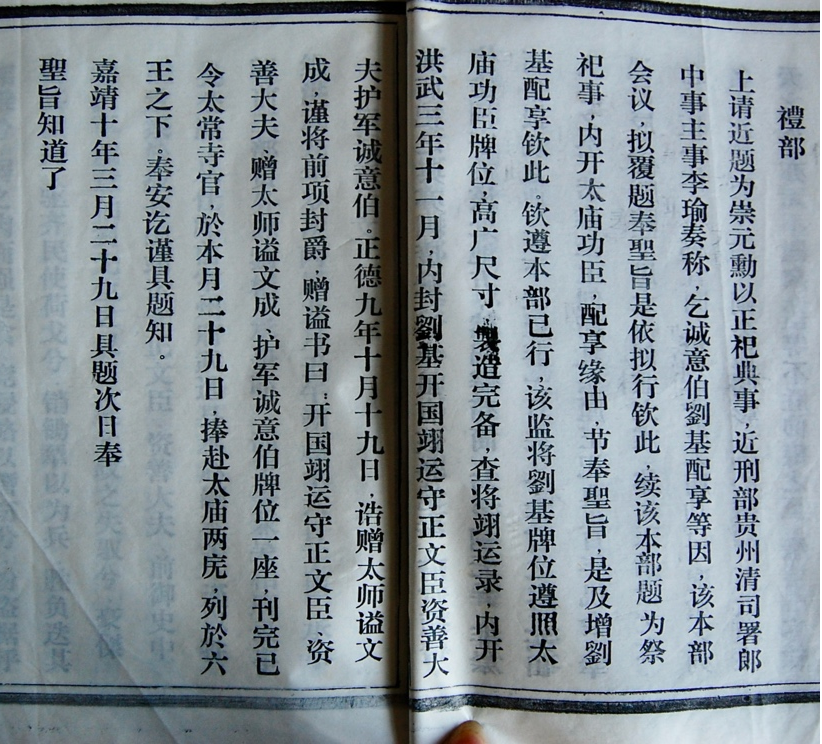 禮部
上请近题为崇元勳以正祀典事，近刑部贵州清司署郎
中事主事李瑜奏称，乞诚意伯劉基配享等因，该本部
会议，拟覆题奉聖旨是依拟行钦此，续该本部题为祭
祀事，内开太庙功臣，配享缘由，节奉聖旨，是及增劉
基配享钦此。钦遵本部已行，该监将劉基牌位遵照太
庙功臣牌位，高广尺寸，製造完备，查将翊运录，内开
洪武三年十一月，内封劉基开国翊运守正文臣资善大
夫护军诚意伯。正德九年十月十九日，诰赠太师谥文
成，谨将前项封爵，赠谥书曰：开国翊运守正文臣、资
善大夫、赠太师谥文成、护军诚意伯牌位一座，刊完已
令太常寺官，於本月二十九日，捧赴太庙两庑，列於六
王之下。奉安讫谨具题知。
嘉靖十年三月二十九日具题次日奉
聖旨知道了